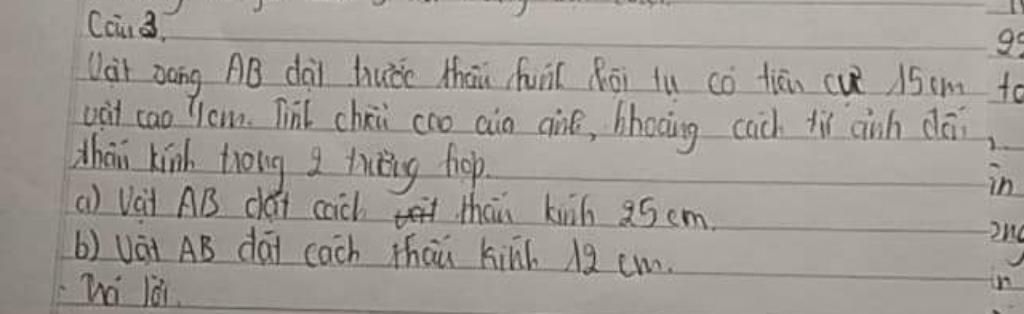 Câu 3.
Vật sáng AB đặt trước thấu kính hội tụ có tiêu cự 15cm
vật cao 4cm. Tính chiều cao của ảnh, khoảng cách từ ảnh đến
thấu kính trong 2 trường hợp.
a) Vật AB đặt cách thấu kính 25cm.
b) Vật AB đặt cách thấu kính 12 cm.
Trả lời.